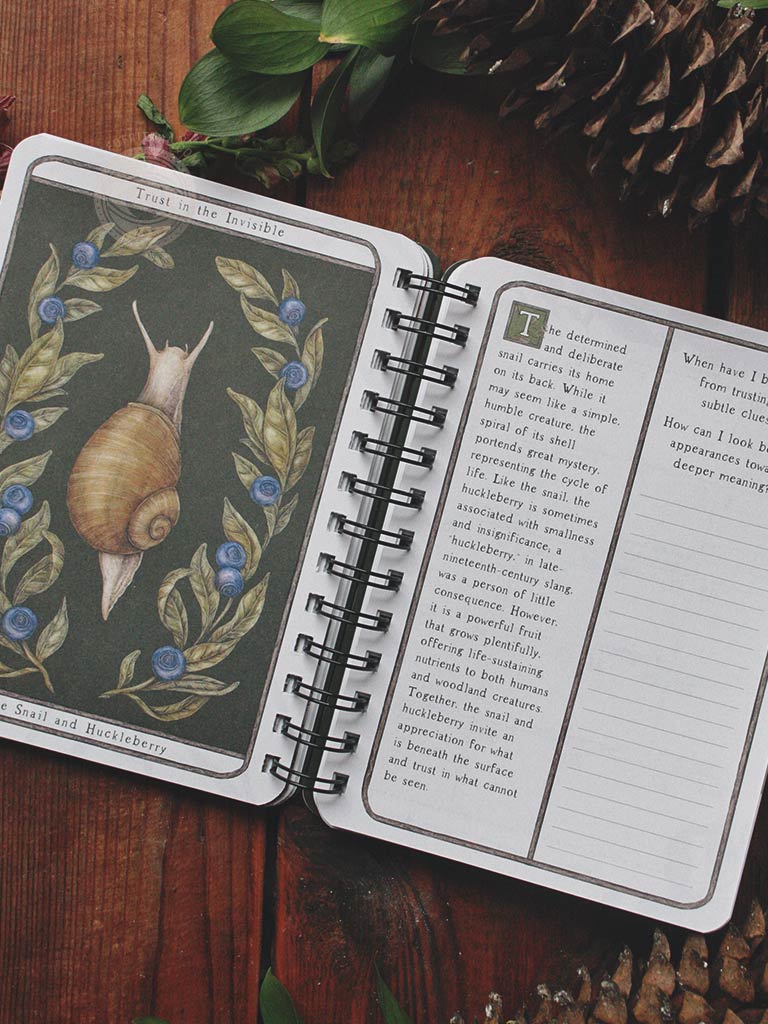 Trust in the Invisible
e Snail and Huckleberry
The determined
and deliberate
snail carries its home
on its back. While it
may seem like a simple,
humble creature, the
spiral of its shell
portends great mystery,
representing the cycle of
life. Like the snail, the
huckleberry is sometimes
associated with smallness
and insignificance, a
"huckleberry," in late-
nineteenth-century slang,
was a person of little
consequence. However,
it is a powerful fruit
that grows plentifully,
offering life-sustaining
nutrients to both humans
and woodland creatures.
Together, the snail and
huckleberry invite an
appreciation for what
is beneath the surface
and trust in what cannot
be seen.
When have I b
from trusting
subtle clues
How can I look be
appearances towa
deeper meaning?